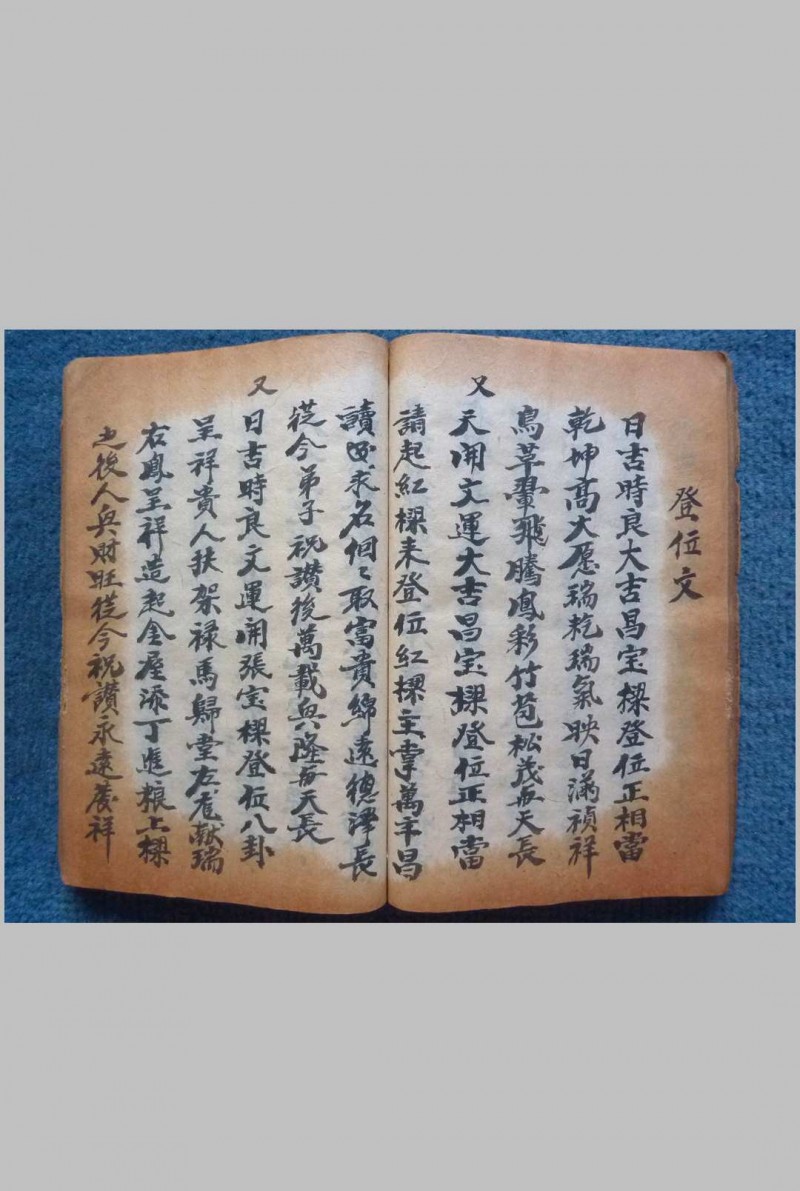 登位文
日吉時良大吉昌宝樑登位正相當
乾坤高大愿瑞乾瑞氣映日滿禎祥
鳥革翬飛騰鳳彩竹苞松茂毎天長
又
天開文運大吉昌宝樑登位正相當
請起紅樑来登位紅樑主掌萬年昌
讀求名個〻取富貴綿遠德澤長
從今弟子祝讃後萬載興隆毎天長
又
日吉時良文運開張宝樑登位八卦
呈祥貴人扶架禄馬歸堂左龙献瑞
右鳳呈祥造起金屋添丁進粮上樑
之後人興財旺從今祝讃永遠發祥